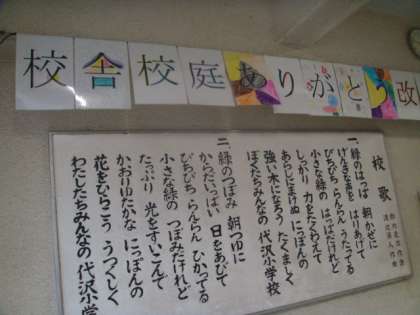 校舎校庭ありがとう改
校歌
一、緑のはっぱ 朝かぜに
げんきな声を はりあげて
ぴちぴち らんらん うたってる
小さな緑の はっぱだけれど
しっかり 力をたくわえて
あらしにまけぬ にっぽんの
強い木になろう たくましく
ぼくたちみんなの 代沢小学校
二、緑のつぼみ 朝つゆに
からだいっぱい 日をあびて
ぴちぴち らんらん ひかってる
小さな緑の つぼみだけれど
たっぷり 光をすいこんで
かおりゆたかな にっぽんの
花をひらこう うつくしく
わたしたちみんなの 代沢小学